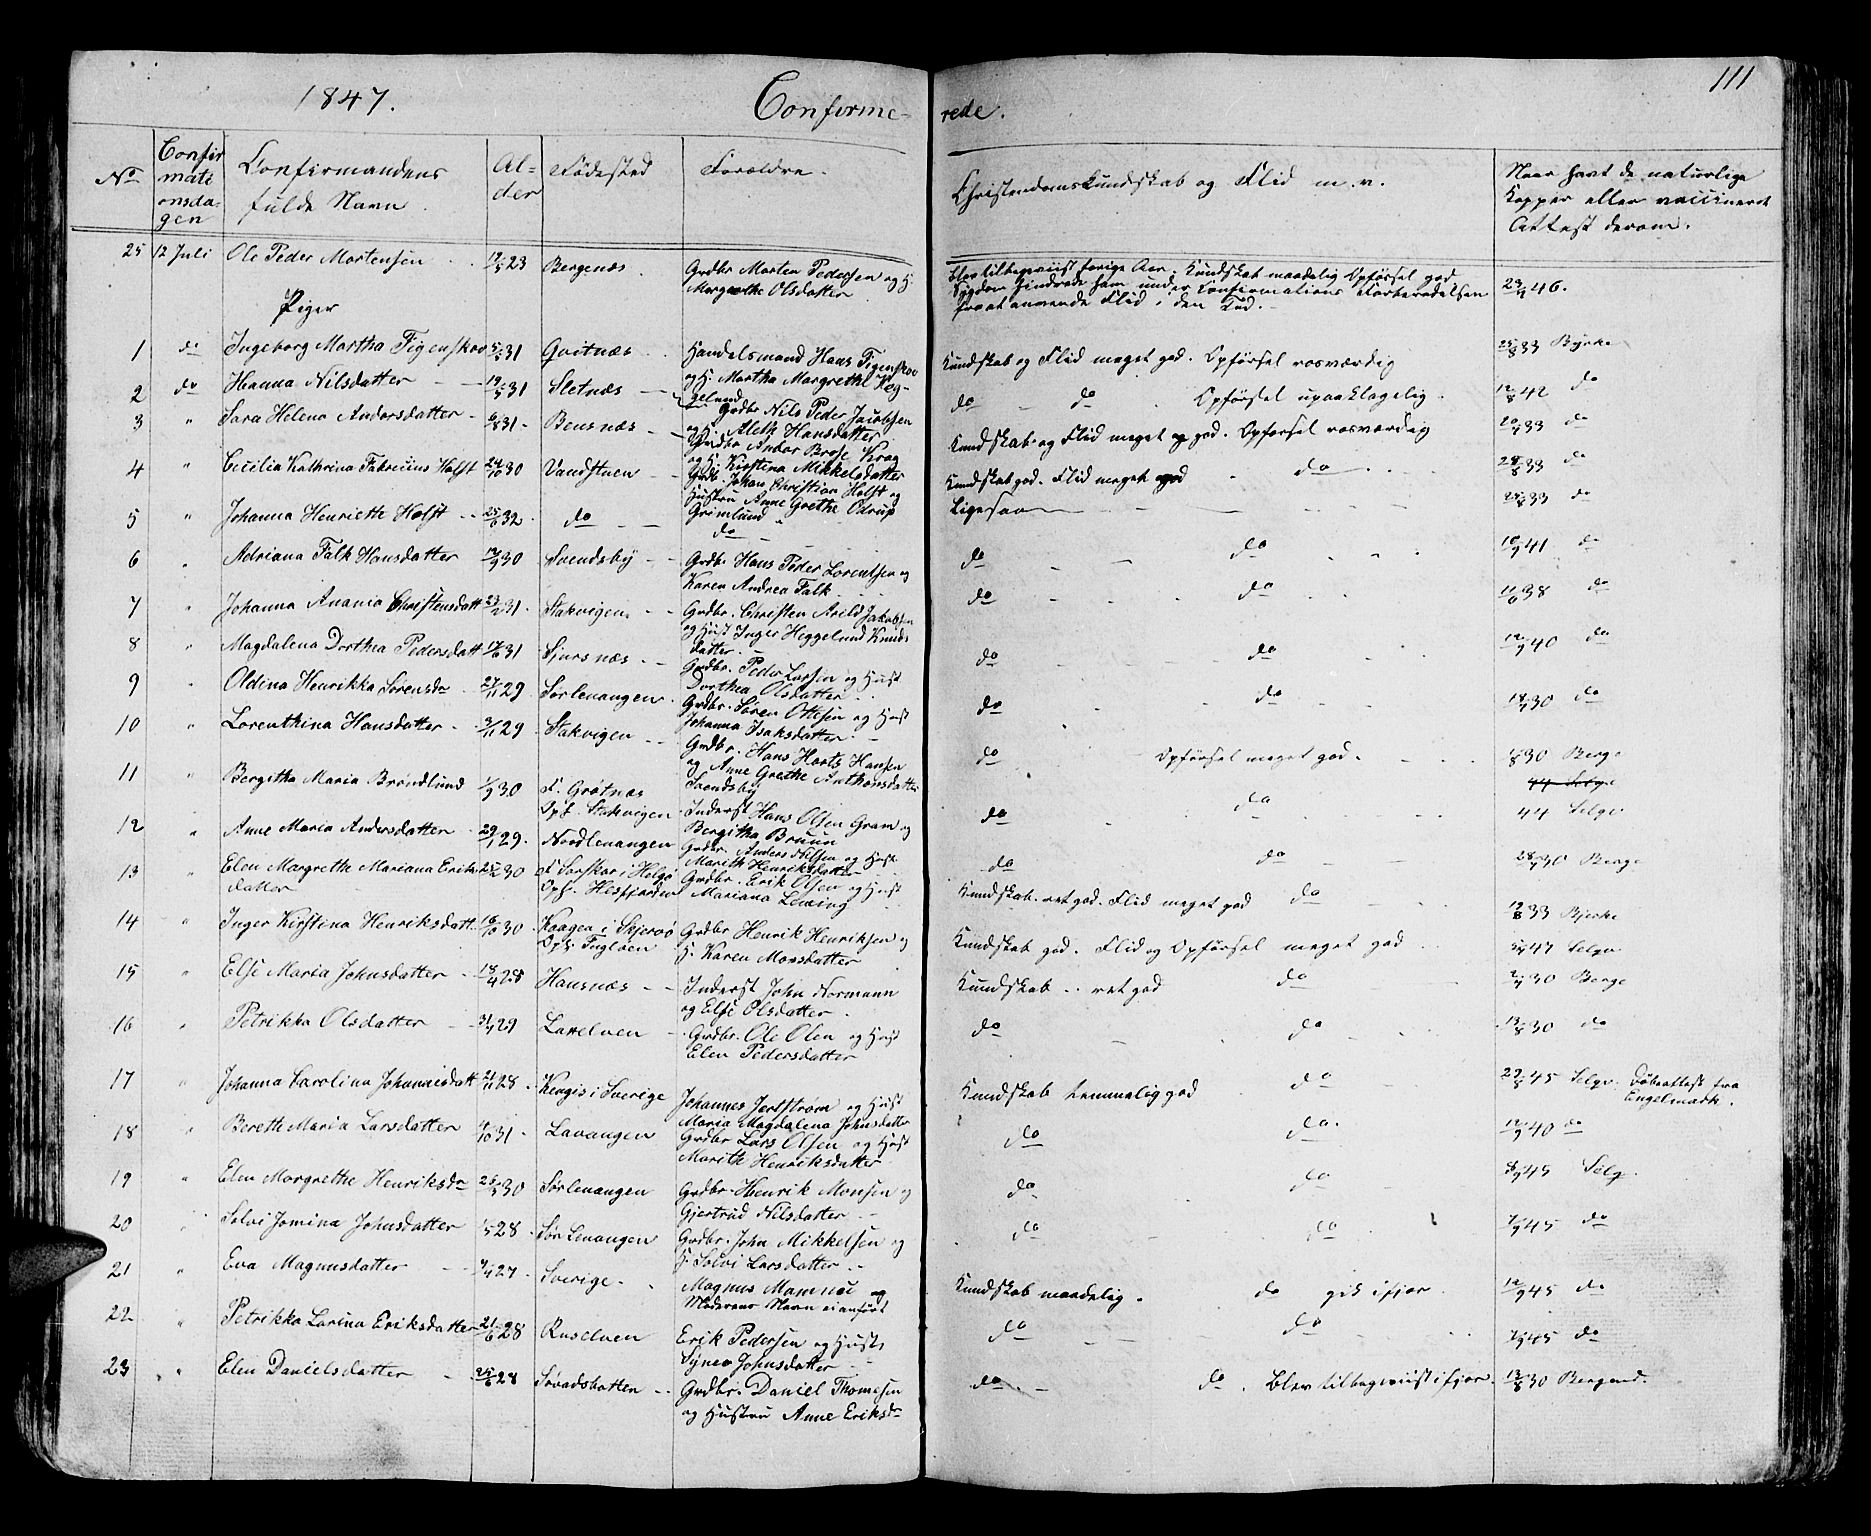 1847. Conforme- rede. 111
No Confirmationsdagen Confirmandens fulde Navn. Alder Fødested Forældre. Christendomskundskab og Flid m. v. Naar havt de naturlige Kopper eller vaccineret Attest derom.
25 12 Juli Ole Peder Mortensen 23 Bergenæs. Grdbr Morten Pedersen og H. Margrethe Olsdatter Blev tilbageviist forige Aar. Kundskab maadelig Opførsel god
Sygdom hindrede ham under Confirmations Forberedelsen
fra at anvende Flid i den Tid. 46.
Piger
1 do Ingeborg Martha Figenskov 31 Gvitnæs Handelsmand Hans Figenskov og H. Martha Margrethe Heggelund Kundskab og Flid meget god. Opførsel rosværdig 33 Byrke
2 do Hanna Nilsdatter 19/5 31 Sletnæs Grdbr Nils Peder Jacobsen og H. Aleth Hansdatter do do Opførsel upaaklagelig. 12/8 42 do
3 " Sara Helena Andersdatter 31 Bensnæs Grdbr Andor Brose Krog og H. Kirstina Mikkelsdatter Kundskab og Flid meget god. Opførsel rosværdig 33 do
4 " Cecilia Kathrina Fabricius Holst 30 Vandstuen Grdb. Johan Christian Holst og Hustru Anne Grethe Odrup Grimlund Kundskab god. Flid meget god do 33 do
5 " Johanna Henriette Holst 32 do do Ligesaa 33 do
6 " Adriana Falk Hansdatter 30 Svendsby Grdbr Hans Peder Lorentsen og Karen Andrea Falk do do 41 do
7 " Johanna Anania Christensdatt 31 Stakvigen Grdbr. Christen Arild Jakobsen og Hust Inger Heggelund Knudsdatter do do 38 do
8 " Magdalena Dorthea Pedersdatt 31 Sjursnæs Grdbr. Peder Larsen og Hust Dorthea Olsdatter do do 40 do
9 " Oldina Henrikka Sørensdr 27/11 29 Sørlenangen Grdbr. Søren Ottesen og Hust Johanna Isaksdatter do do 30 do
10 " Lorenthina Hansdatter 3/11 29 Stakvigen Grdbr. Hans Harts Hansen og Anne Grethe Anthonsdatter Svendsby do Opførsel meget god. 30 Berge
11 Bergitha Maria Brøndlund 30 F. Grøtnæs Opf. Stakvigen Inderst Hans Olsen Gram og Bergitha Bruun do do 44 Selgv
12 " Anne Maria Andersdatter 29/1 29. Nordlenangen Grdbr. Anders Nilsen og Hust Marith Henriksdatter do do 30 Berge
13 " Elen Margrethe Mariana Eriksdatter 30 F. Torskør i Helgø Opf. Hesfjorden Grdbr. Erik Olsen og Hust Mariana Lewing Kundskab ret god. Flid meget god do 12/8 33 Bjerke
14 " Inger Kirstina Henriksdatt. 16/10 30 Kaagen i Skjervø Opf. Fugløen Grdbr Henrik Henriksen og H. Karen Monsdatter Kundskab god. Flid og Opførsel meget god 47 Selgv
15 " Else Maria Johnsdatter 18/4 28 Hansnæs Inderst John Normann og Else Olsdatter. Kundskab ret god do 30 Berge
16 " Petrikka Olsdatter 29 Laxelven Grdbr. Ole Olen og Hust Elen Pedersdatter do do 13/8 30 do
17 " Johanna Carolina Johannisdatt 21/11 28 Kengis i Sverige Johannes Jertstrøm og Hust Maria Magdalena Johnsdatter Kundskab temmelig god do 45 Selgv. Døbeattest fra Engelmark.
18 " Berethe Maria Larsdatter 31 Lavangen Grdbr Lars Olsen og Hust Marith Henriksdatter do do. 40 do
19 " Elen Margrethe Henriksdr 30 Sørlenangen Grdbr. Henrik Monsen og Gjertrud Nilsdatter do do 45 Selg.
20 Solvi Jomina Johnsdatter 28 Sør Lenangen Grdbr. John Mikkelsen og H. Solvi Larsdatter do do 45 do
21 " Eva Magnusdatter 27 Sverige Magnus Mamnoi og Moderens Navn ei anført Kundskab maadelig. do gik ifjor 45 do
22 " Petrikka Larina Eriksdatter 21/6 28 Ruselven Erik Pedersen og Hust Synev Johnsdatter do do 45 do
23 " Elen Danielsdatter 28 Søvadsbotten Grdbr. Daniel Thomesen og Hustru Anne Eriksdr do do. Blev tilbageviist ifjor. 13/8 30 Bergend.